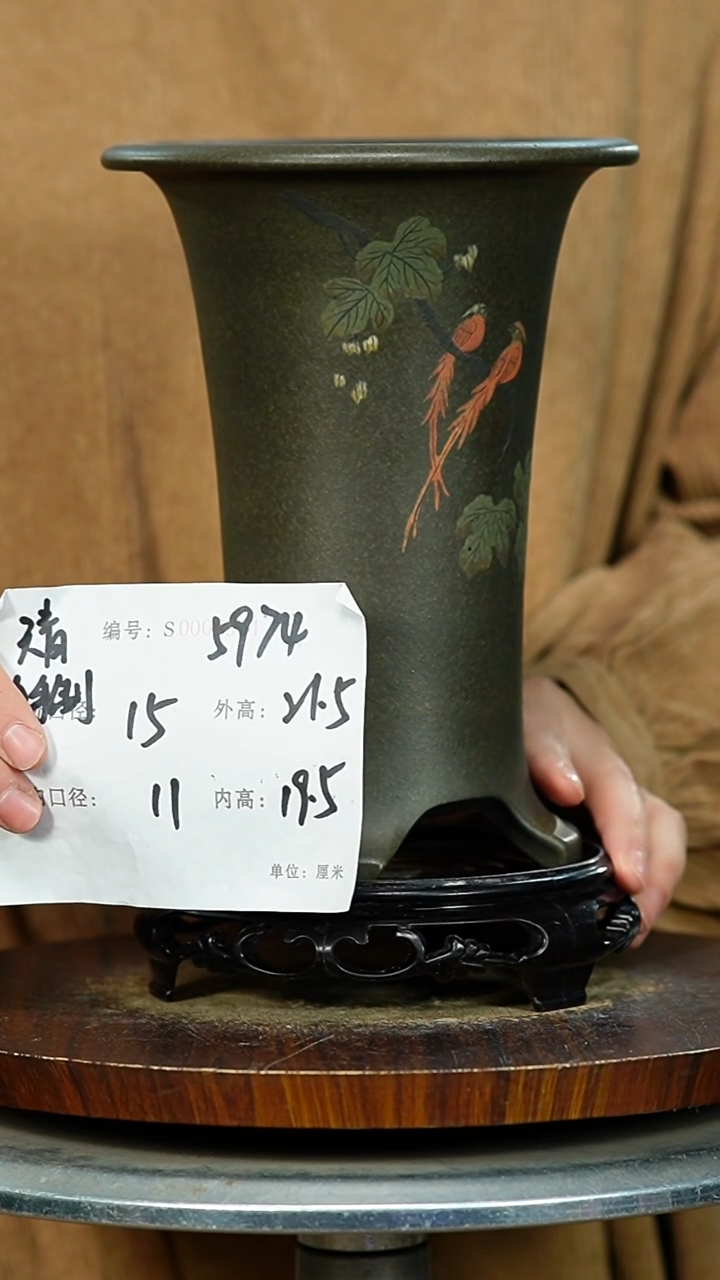 编号：S 5974
口径： 15 外高： 21.5
口径： 11 内高： 19.5
单位：厘米